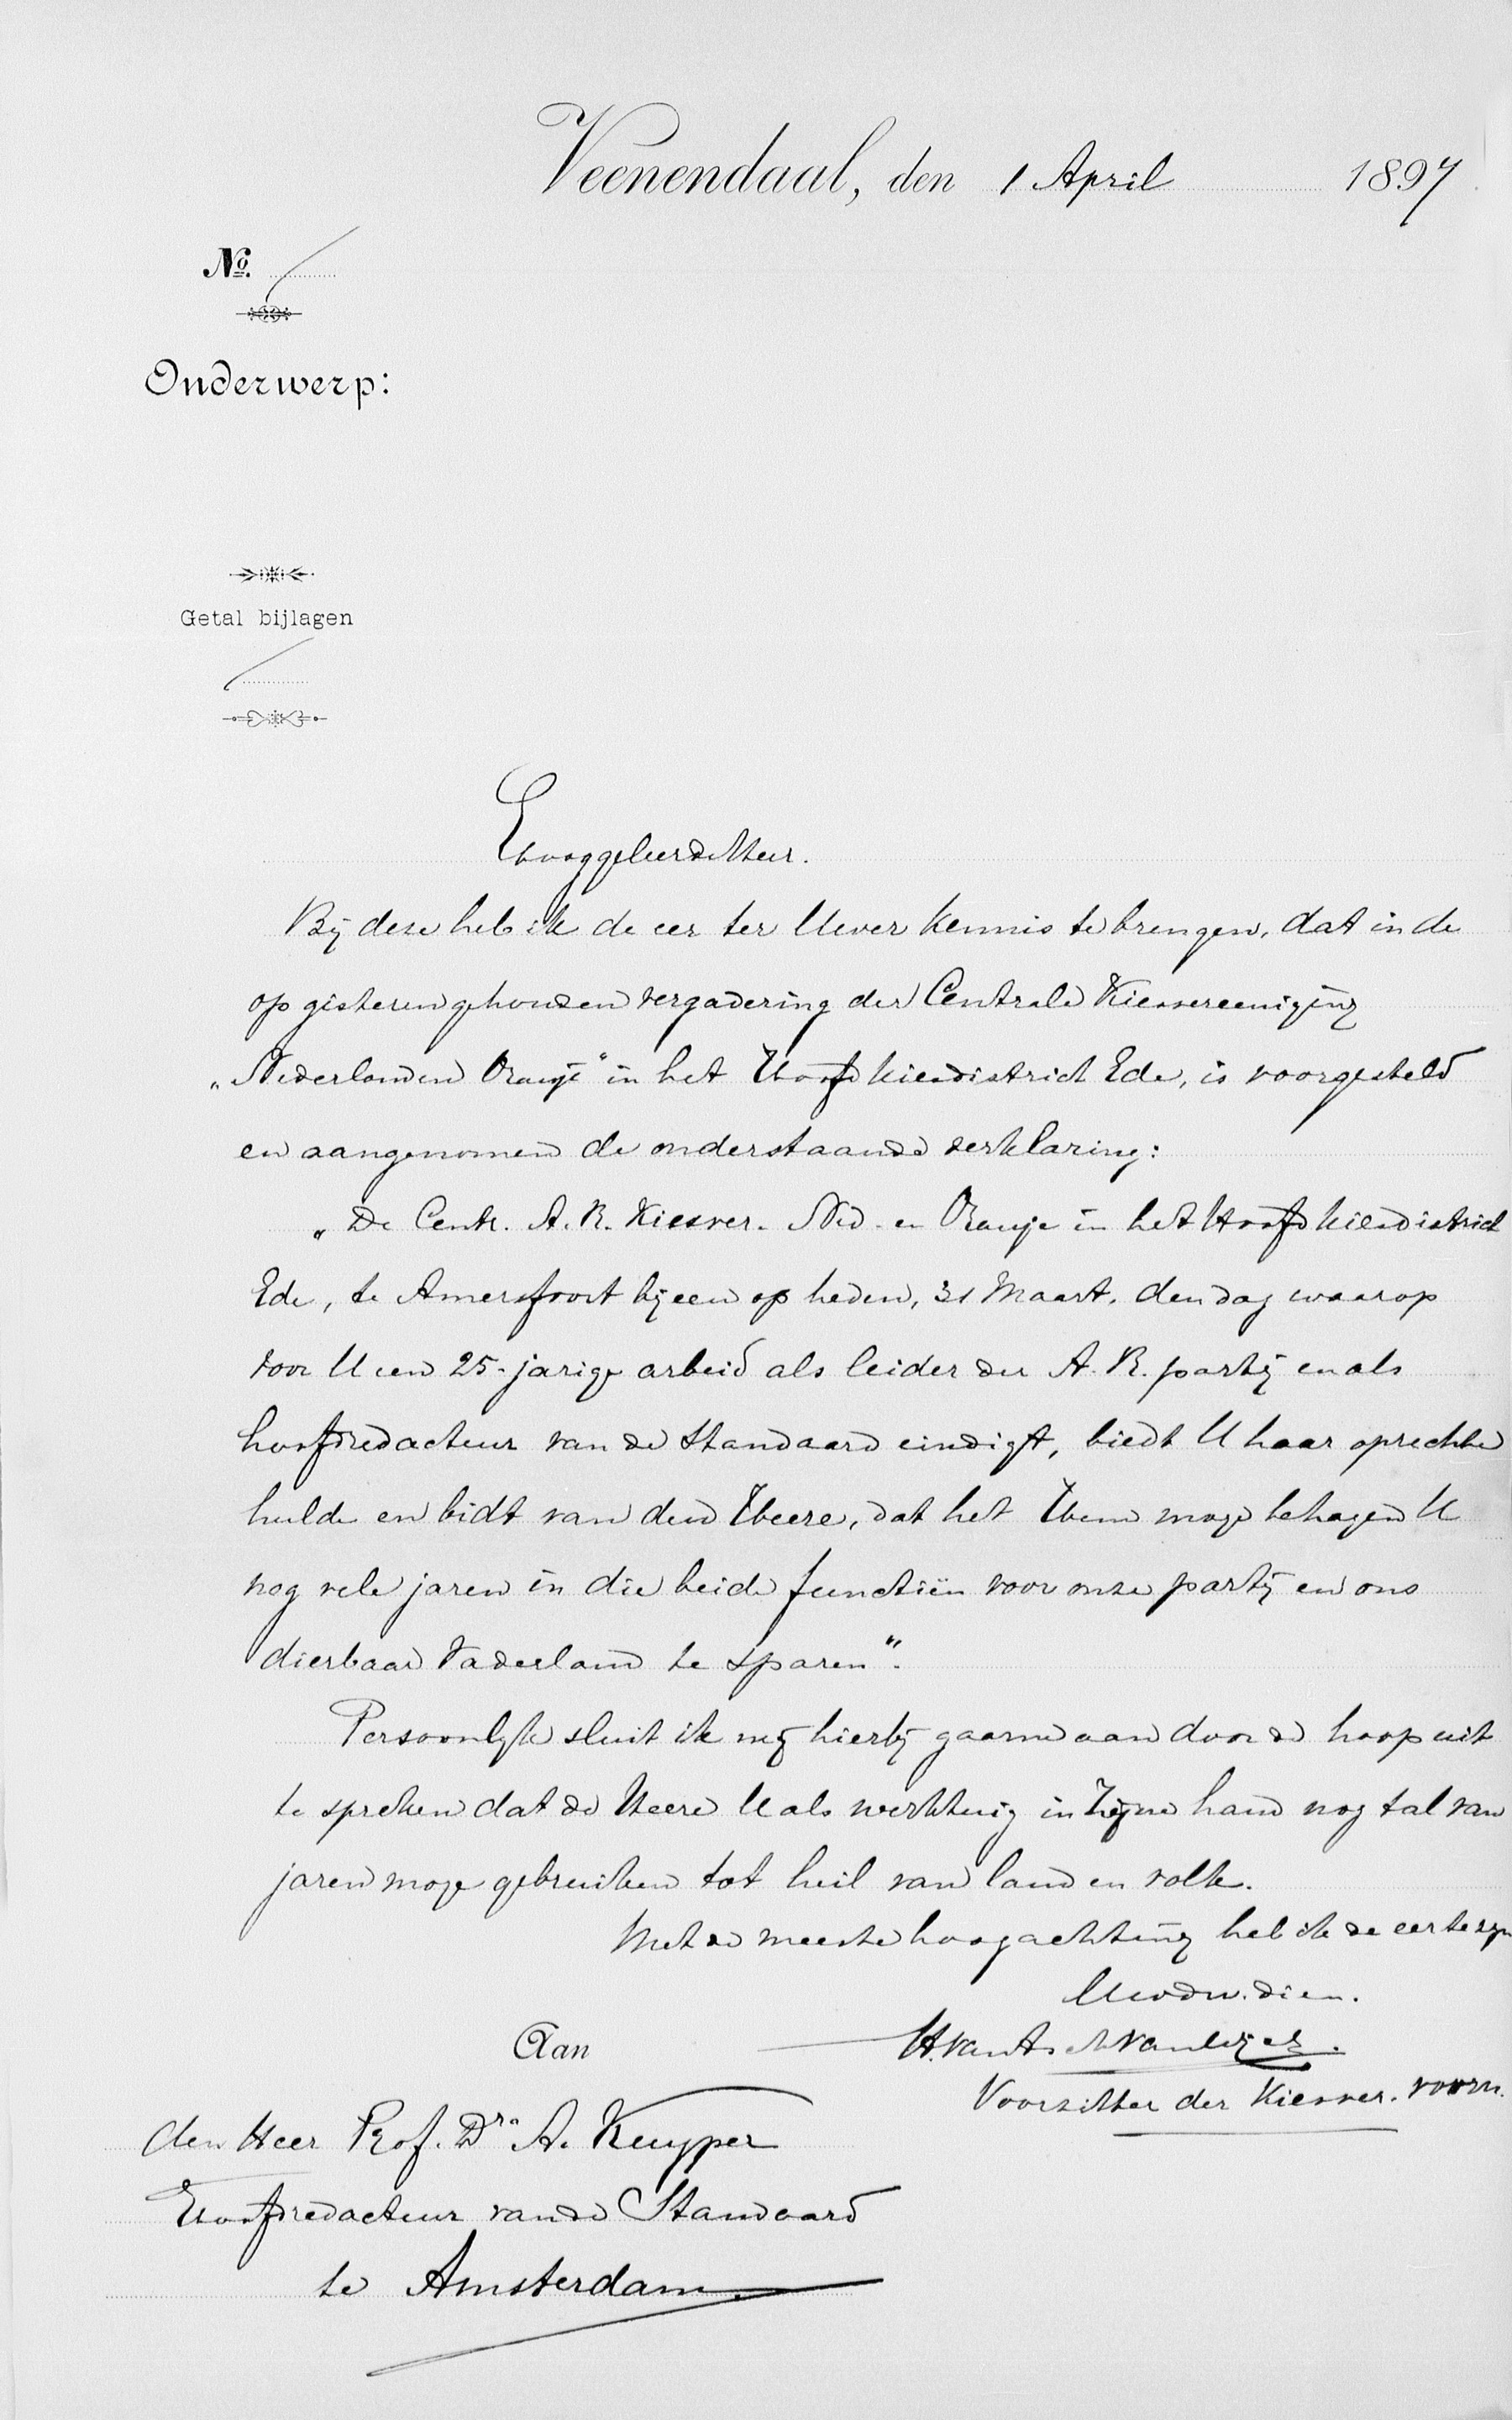 Veenendaal, den 1 April 1897
No.
Onderwerp:
Getal bijlagen
Hooggeleerde Heer.
Bij deze heb ik de eer ter Uwer kennis te brengen, dat in de
op gisteren gehouden vergadering der Centrale Kiesvereeniging
„Nederland en Oranje" in het Hoofdkiesdistrict Ede, is voorgesteld
en aangenomen de onderstaande verklaring:
„De Centr. A. R. Kiesver. Ned. en Oranje in het Hoofdkiesdistrict
Ede, te Amersfoort bijeen op heden, 31 Maart, den dag waarop
voor U een 25-jarige arbeid als leider der A. R. partij en als
hoofdredacteur van de Standaard eindigt, biedt U haar oprechte
hulde en bidt van den Heere, dat het Hem moge behagen U
nog vele jaren in die beide functiën voor onze partij en ons
dierbaar Vaderland te sparen".
Persoonlijk sluit ik mij hierbij gaarne aan door de hoop uit
te spreken dat de Heere U als werktuig in Zijne hand nog tal van
jaren moge gebruiken tot heil van land en volk.
Met de meeste hoogachting heb ik de eer te zijn
Uwdw. dien.
H. van
Aan
Voorzitter der Kiesver. voorn.
den Heer Prof. Dr. A. Kuyper
Hoofdredacteur van de Standaard
te Amsterdam.